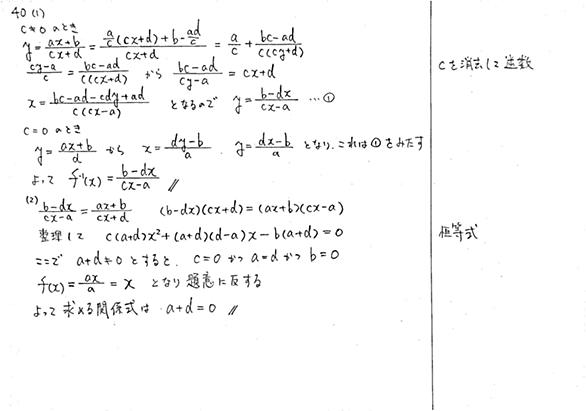 40 (1)
c≠0 のとき
y = (ax+b)/(cx+d) = (a/c(cx+d)+b-ad/c)/(cx+d) = a/c + (bc-ad)/(c(cy+d))
(cy-a)/c = (bc-ad)/(c(cx+d)) から (bc-ad)/(cy-a) = cx+d
x = (bc-ad-cdy+ad)/(c(cx-a)) となるので y = (b-dx)/(cx-a) …①
c=0 のとき
y = (ax+b)/d から x = (dy-b)/a . y = (dx-b)/a となり、これは①をみたす
よって f⁻¹(x) = (b-dx)/(cx-a) //
(2) (b-dx)/(cx-a) = (ax+b)/(cx+d) (b-dx)(cx+d) = (ax+b)(cx-a)
整理して c(a+d)x²+(a+d)(d-a)x-b(a+d)=0
ここで a+d≠0 とすると、 c=0 かつ a=d かつ b=0
f(x) = ax/a = x となり題意に反する
よって 求める関係式は a+d=0 //
cを消去して逆数
恒等式